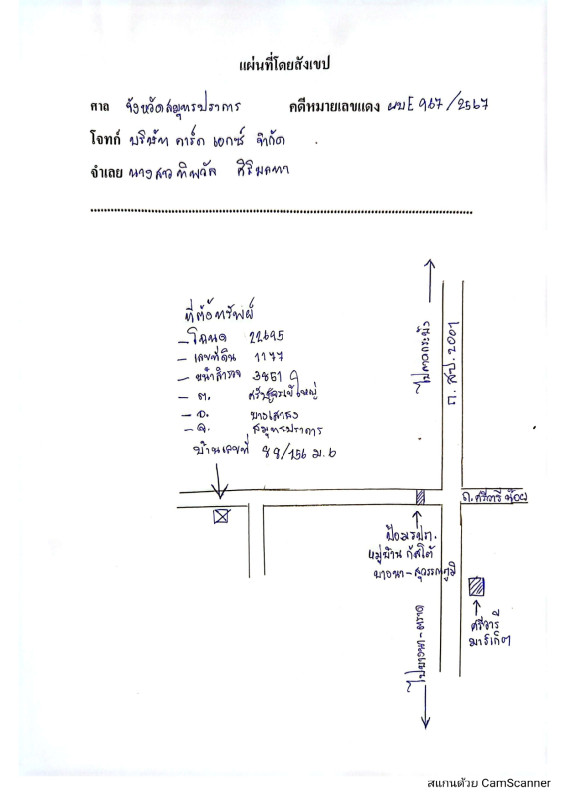 แผ่นที่โดยสังเขป
ศาล จังหวัดสมุทรปราการ คดีหมายเลขแดง ผบE 967/2567
โจทก์ บริษัท คาร์ด เอกซ์ จำกัด
จำเลย นางสาวทิพวัล
ที่ตั้งทรัพย์
- โฉนด 22695
- เลขที่ดิน 1177
- หน้าสำรวจ 3851
- ต. ศรีษะจรเข้ใหญ่
- อ. บางเสาธง
- จ. สมุทรปราการ
บ้านเลขที่ 89/156 ม.6
ไปลาดกระบัง
ถ. สป. 2001
ถ. ศรีวารีน้อย
ป้อมรปภ.
หมู่บ้าน กัสโต้
บางนา-สุวรรณภูมิ
ศรีวารี
มาร์เก็ต
ไปบางนา-ตราด
สแกนด้วย CamScanner